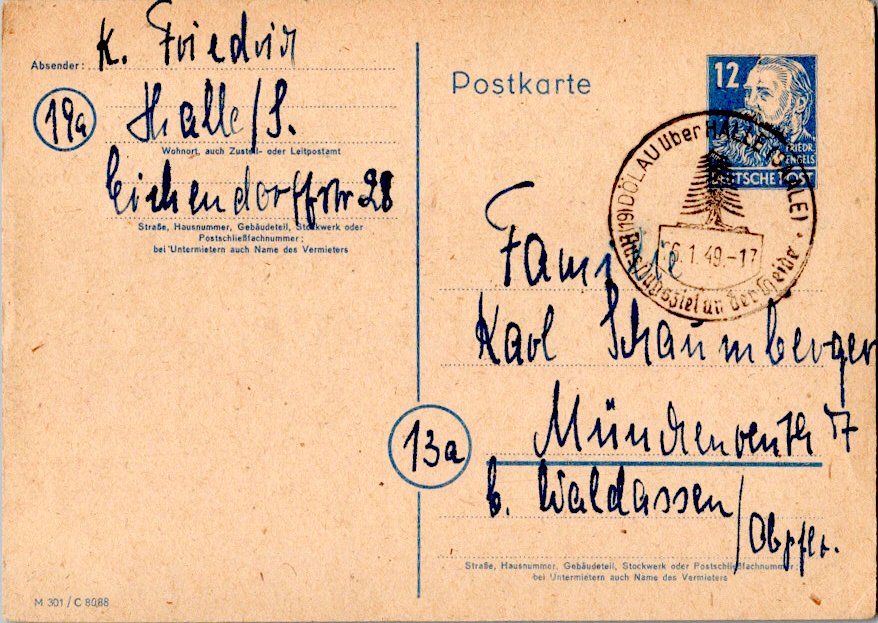 Absender: K. Friedrich
19a Halle/S.
Wohnort, auch Zustell- oder Leitpostamt
Eichendorffstr 28
Straße, Hausnummer, Gebäudeteil, Stockwerk oder
Postschließfachnummer;
bei Untermietern auch Name des Vermieters
M 301 / C 8088
Postkarte
12
FRIEDR.
ENGELS
DEUTSCHE POST
(19) DÖLAU über HALLE (SAALE)
6.1.49.-17
Ausflugsziel an der Heide
Familie
Karl Schaumberger
13a Münchenreuth 17
b. Waldsassen/
Obpflz.
Straße, Hausnummer, Gebäudeteil, Stockwerk oder Postschließfachnummer;
bei Untermietern auch Name des Vermieters